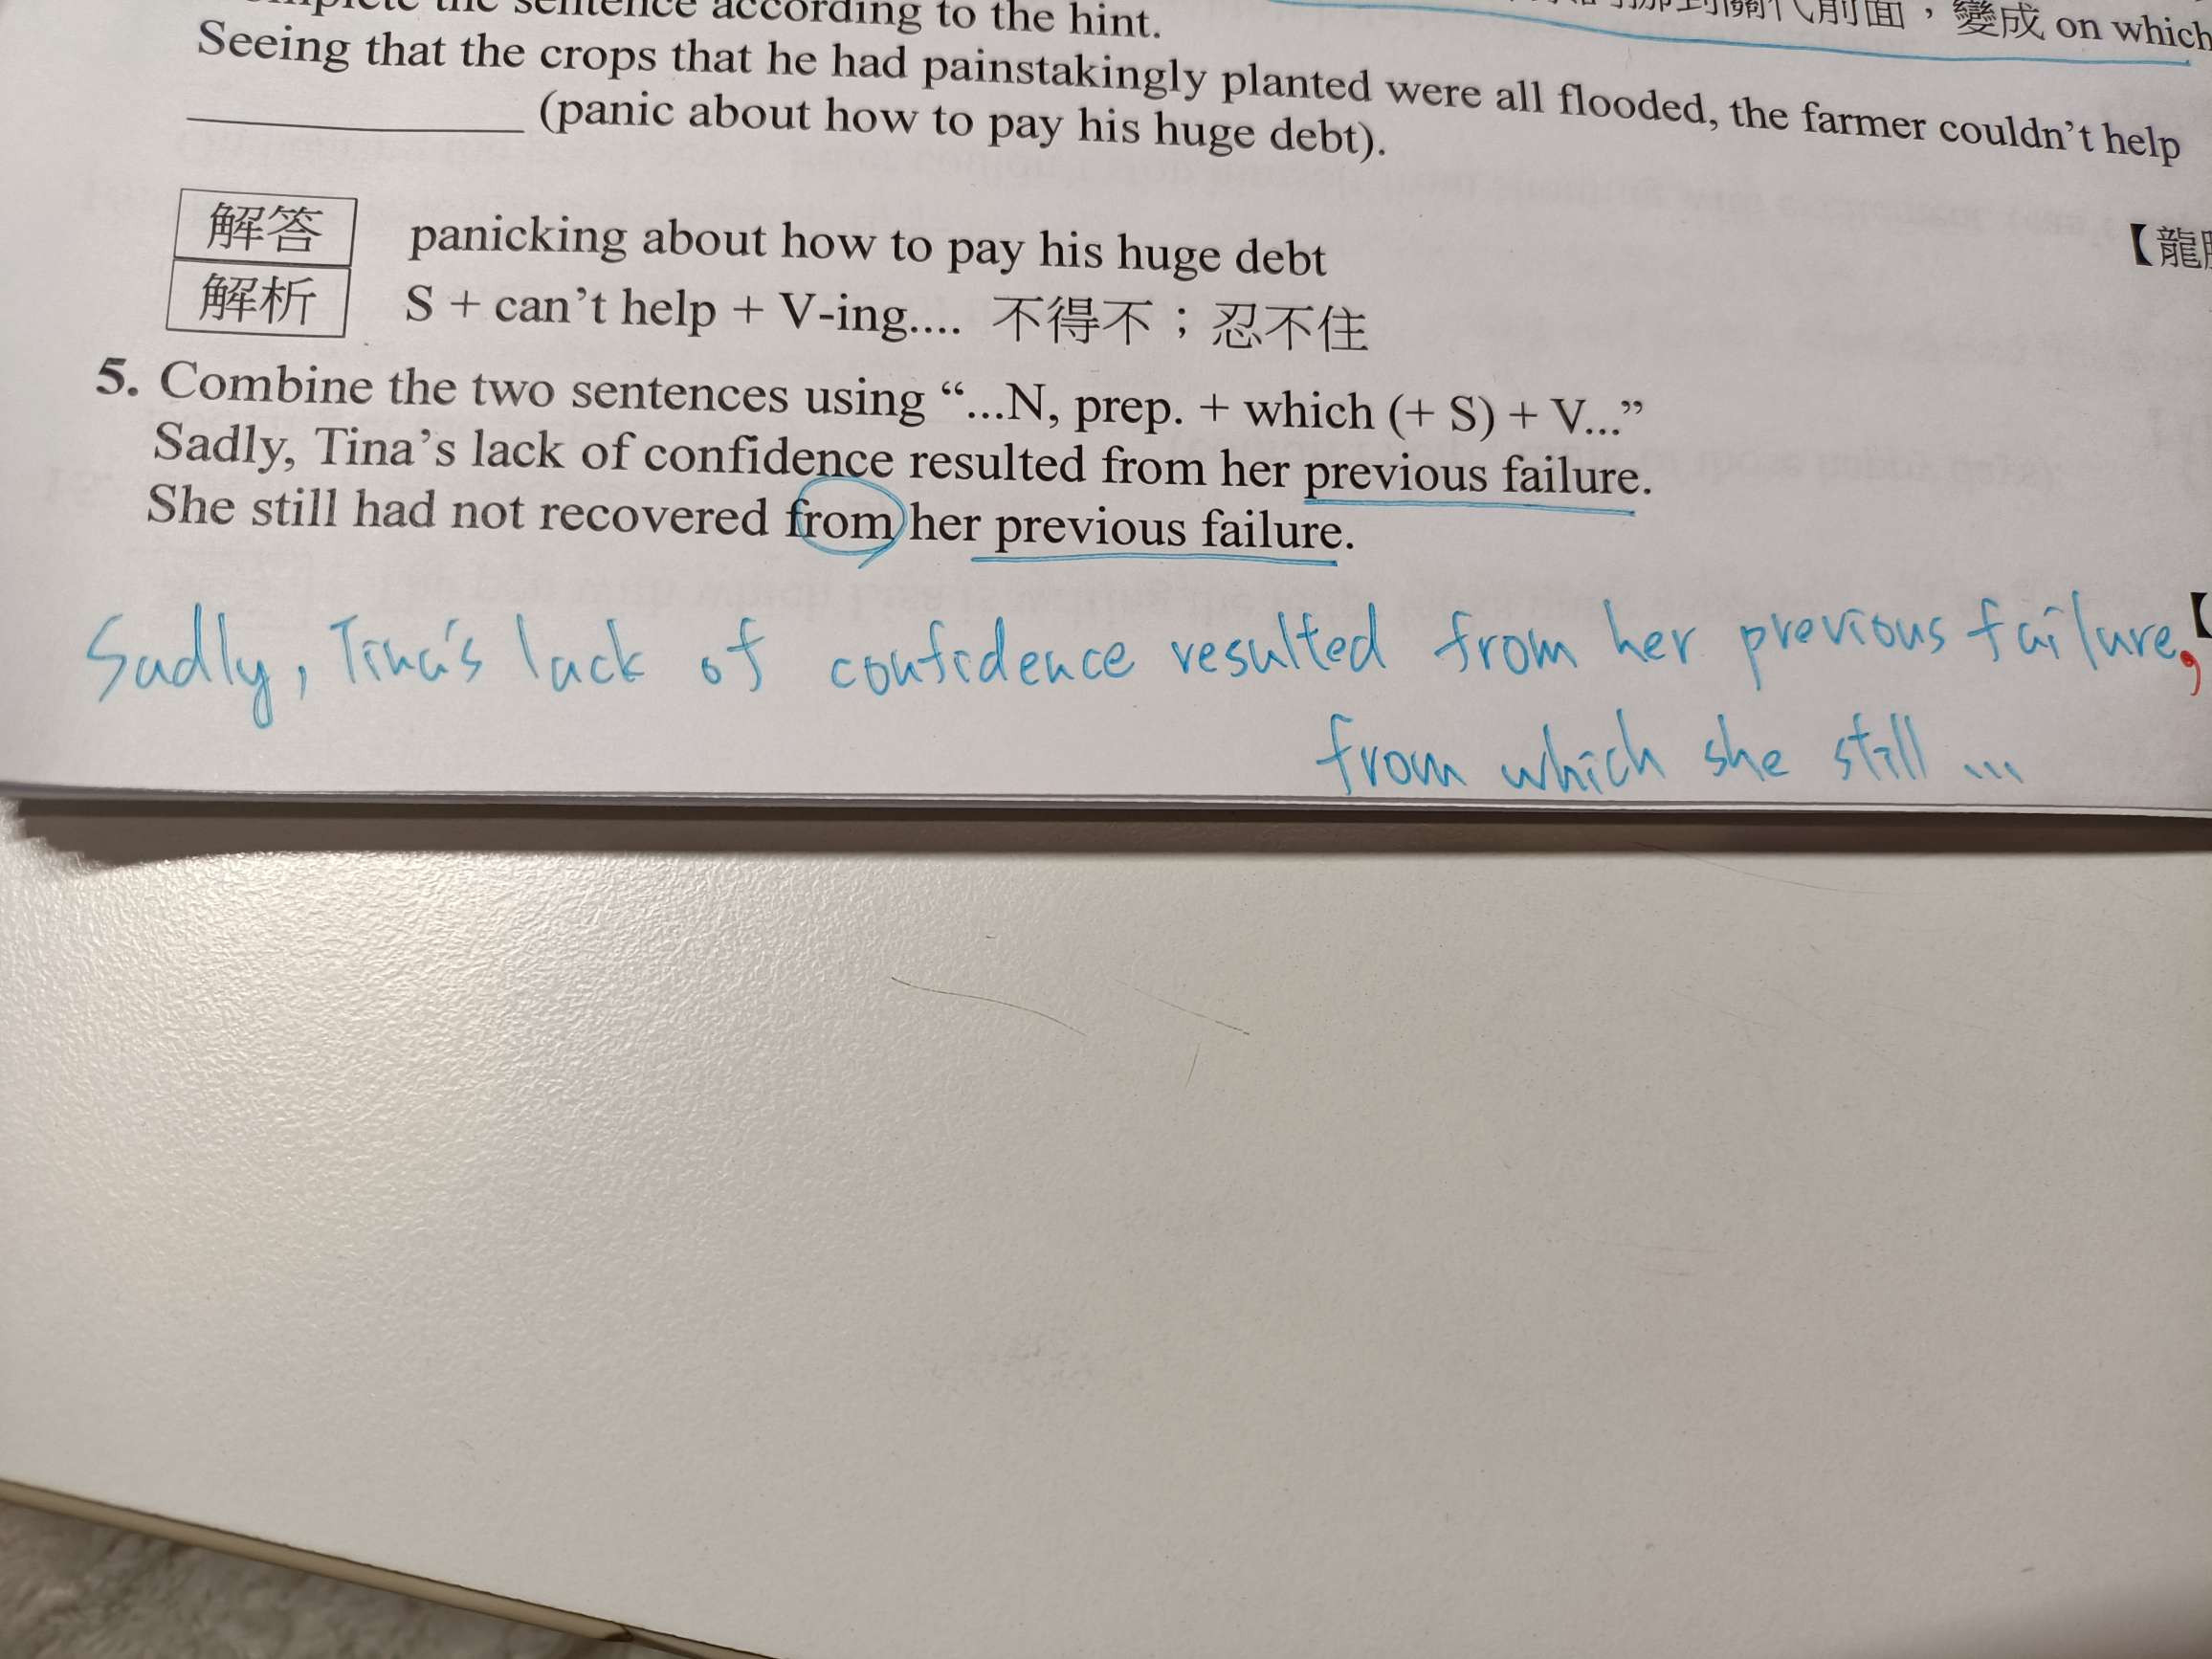 the sentence according to the hint.
前面，變成 on which
Seeing that the crops that he had painstakingly planted were all flooded, the farmer couldn’t help
____________ (panic about how to pay his huge debt).
解答 panicking about how to pay his huge debt
【龍
解析 S + can’t help + V-ing.... 不得不；忍不住
5. Combine the two sentences using “...N, prep. + which (+ S) + V...”
Sadly, Tina’s lack of confidence resulted from her previous failure.
She still had not recovered from her previous failure.
【
Sadly, Tina's lack of confidence resulted from her previous failure,
from which she still ...